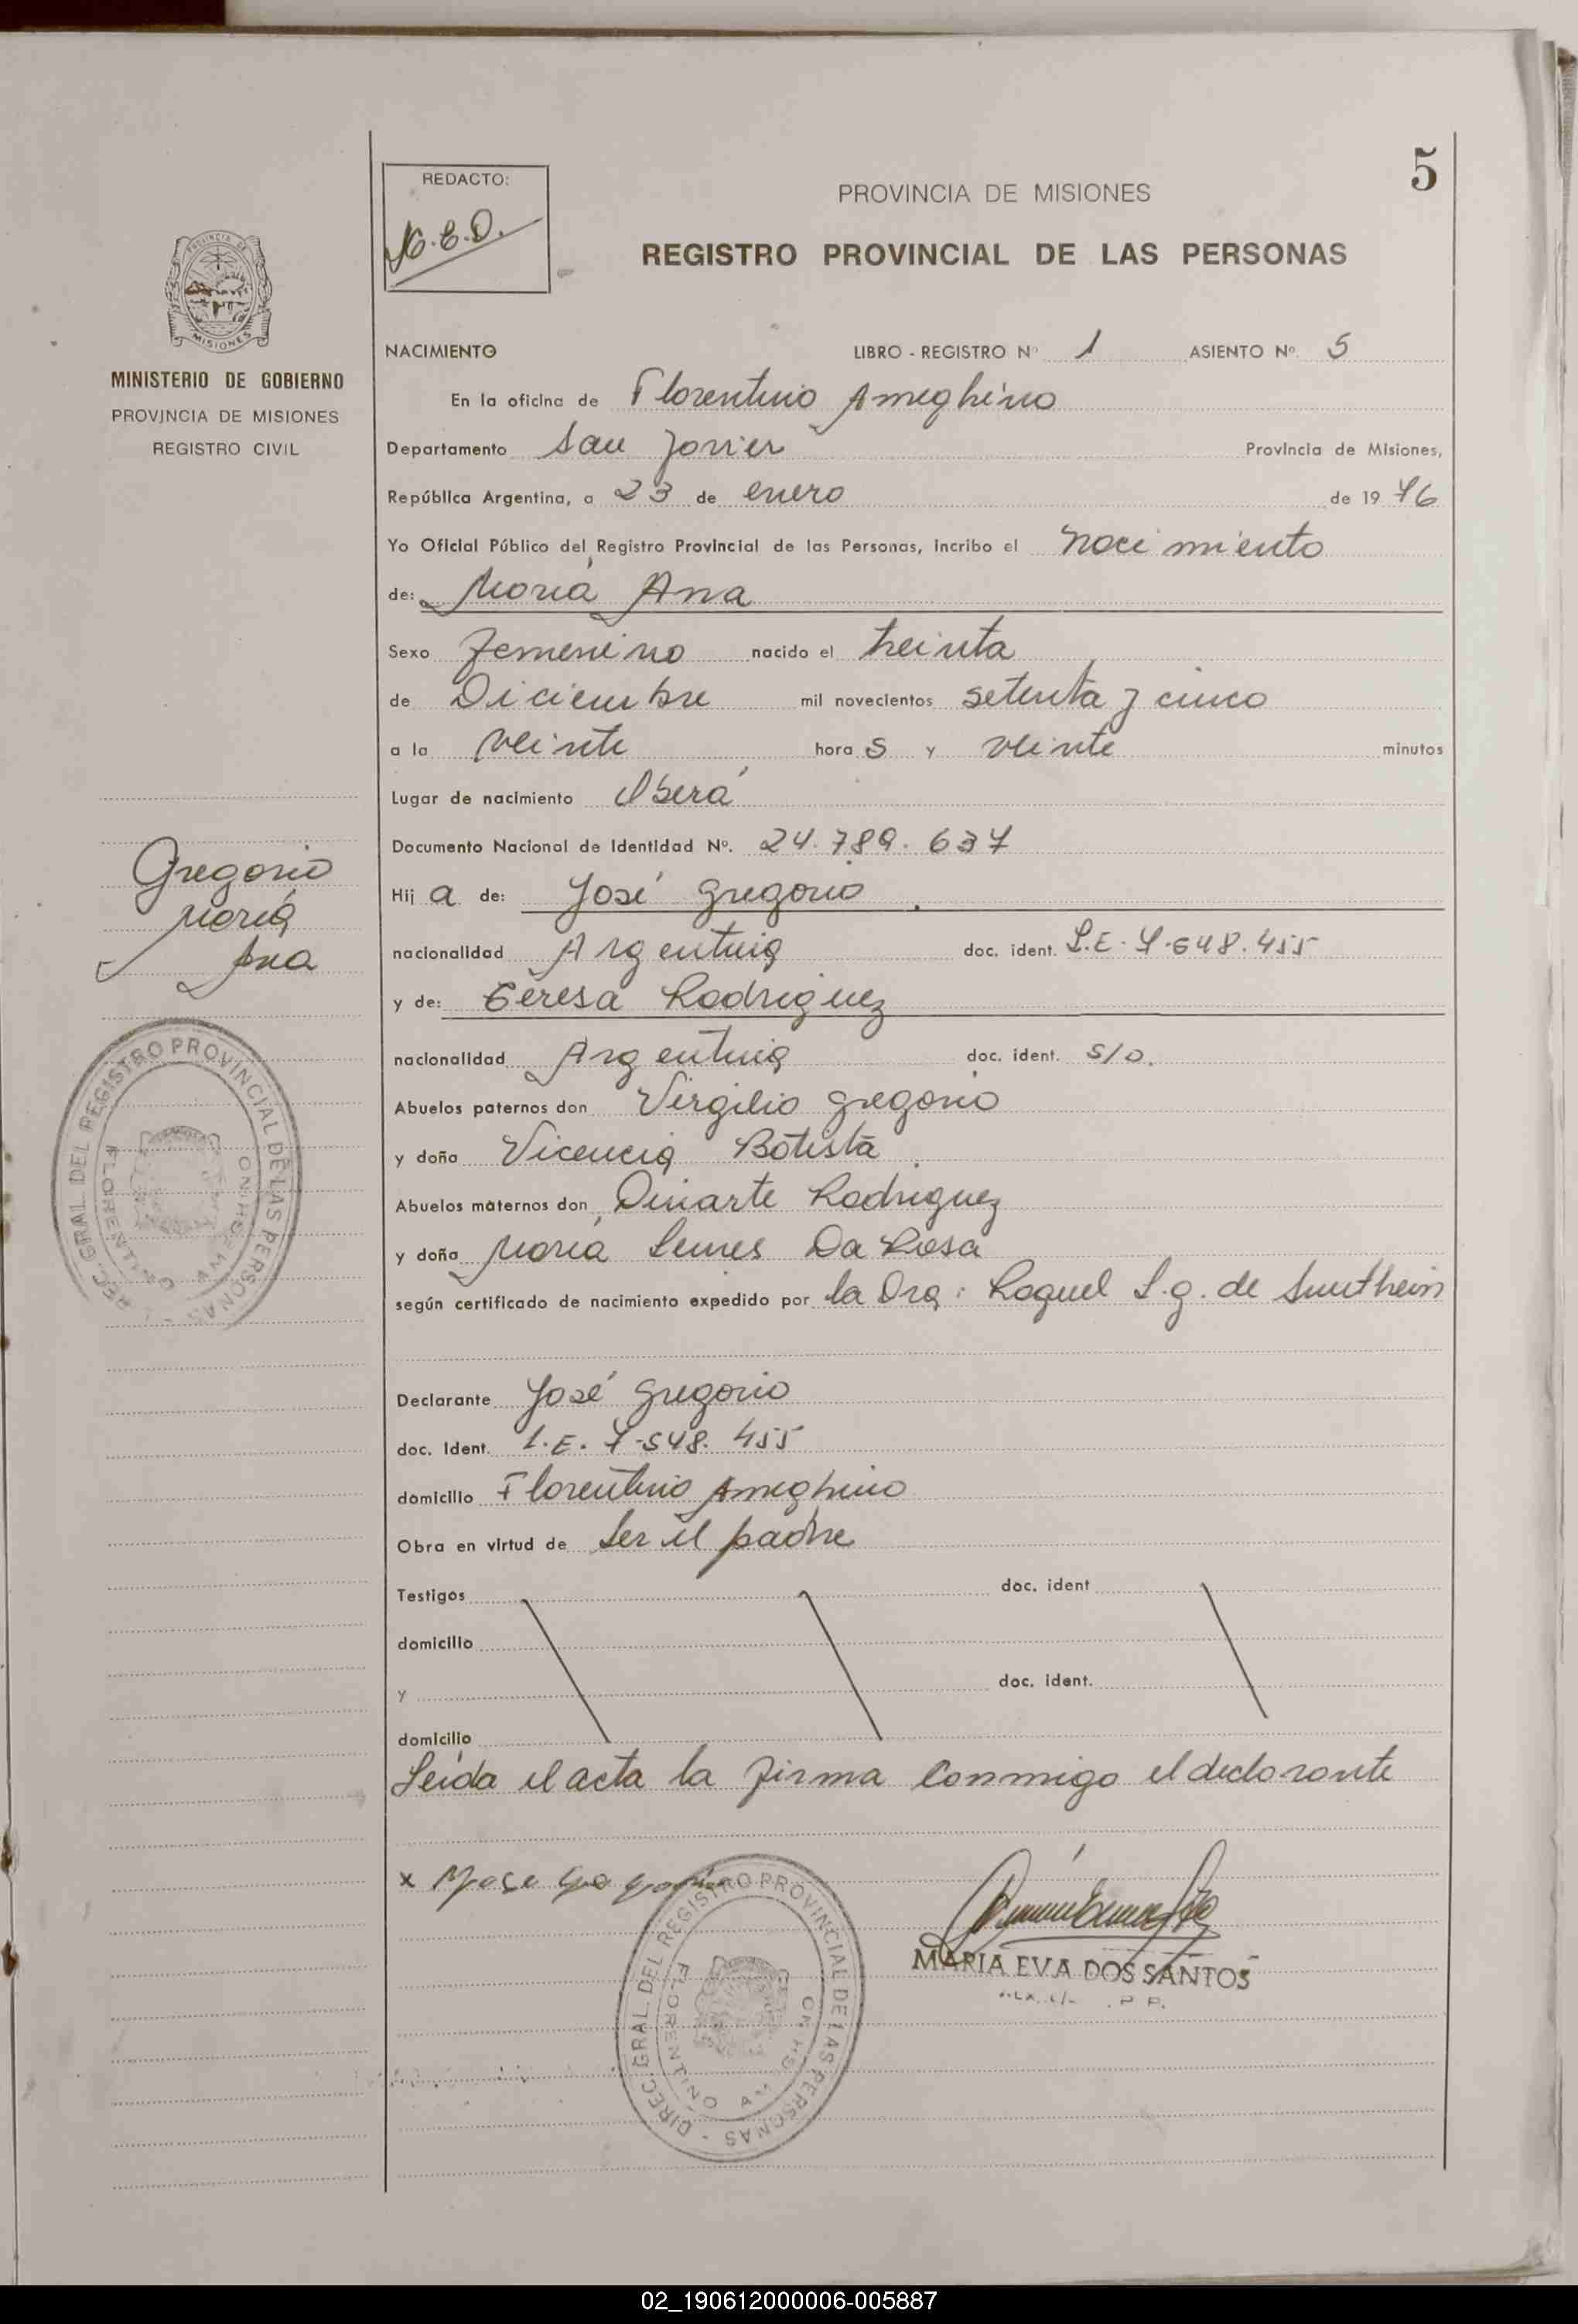 5
REDACTO:
M.E.D.
PROVINCIA DE MISIONES
REGISTRO PROVINCIAL DE LAS PERSONAS
PROVINCIA DE
MISIONES
MINISTERIO DE GOBIERNO
PROVINCIA DE MISIONES
REGISTRO CIVIL
NACIMIENTO LIBRO - REGISTRO Nº 1 ASIENTO Nº 5
En la oficina de Florentino Ameghino
Departamento San Javier Provincia de Misiones,
República Argentina, a 23 de enero de 19 76
Yo Oficial Público del Registro Provincial de las Personas, incribo el nacimiento
de: María Ana
Sexo Femenino nacido el treinta
de Diciembre mil novecientos setenta y cinco
a la veinte hora s y veinte minutos
Lugar de nacimiento Oberá
Documento Nacional de Identidad Nº. 24.789.637
Hij a de: José Gregorio
nacionalidad Argentina doc. ident. L.E. 7.548.455
y de: Teresa Rodriguez
nacionalidad Argentina doc. ident. S/D.
Abuelos paternos don Virgilio Gregorio
y doña Vicencia Batista
Abuelos maternos don Diniarte Rodriguez
y doña María Lemes Da Rosa
según certificado de nacimiento expedido por la Dra: Raquel L.G. de
Declarante José Gregorio
doc. Ident. L.E. 7.548.455
domicilio Florentino Ameghino
Obra en virtud de Ser el padre
Testigos doc. ident
domicilio
y doc. ident.
domicilio
Leída el acta la firma conmigo el declarante
x
MARIA EVA DOS SANTOS
Gregorio
María
Ana
REC. GRAL. DEL REGISTRO PROVINCIAL DE LAS PERSONAS
FLORENTINO AMEGHINO
DIREC. GRAL. DEL REGISTRO PROVINCIAL DE LAS PERSONAS
FLORENTINO
02_190612000006-005887